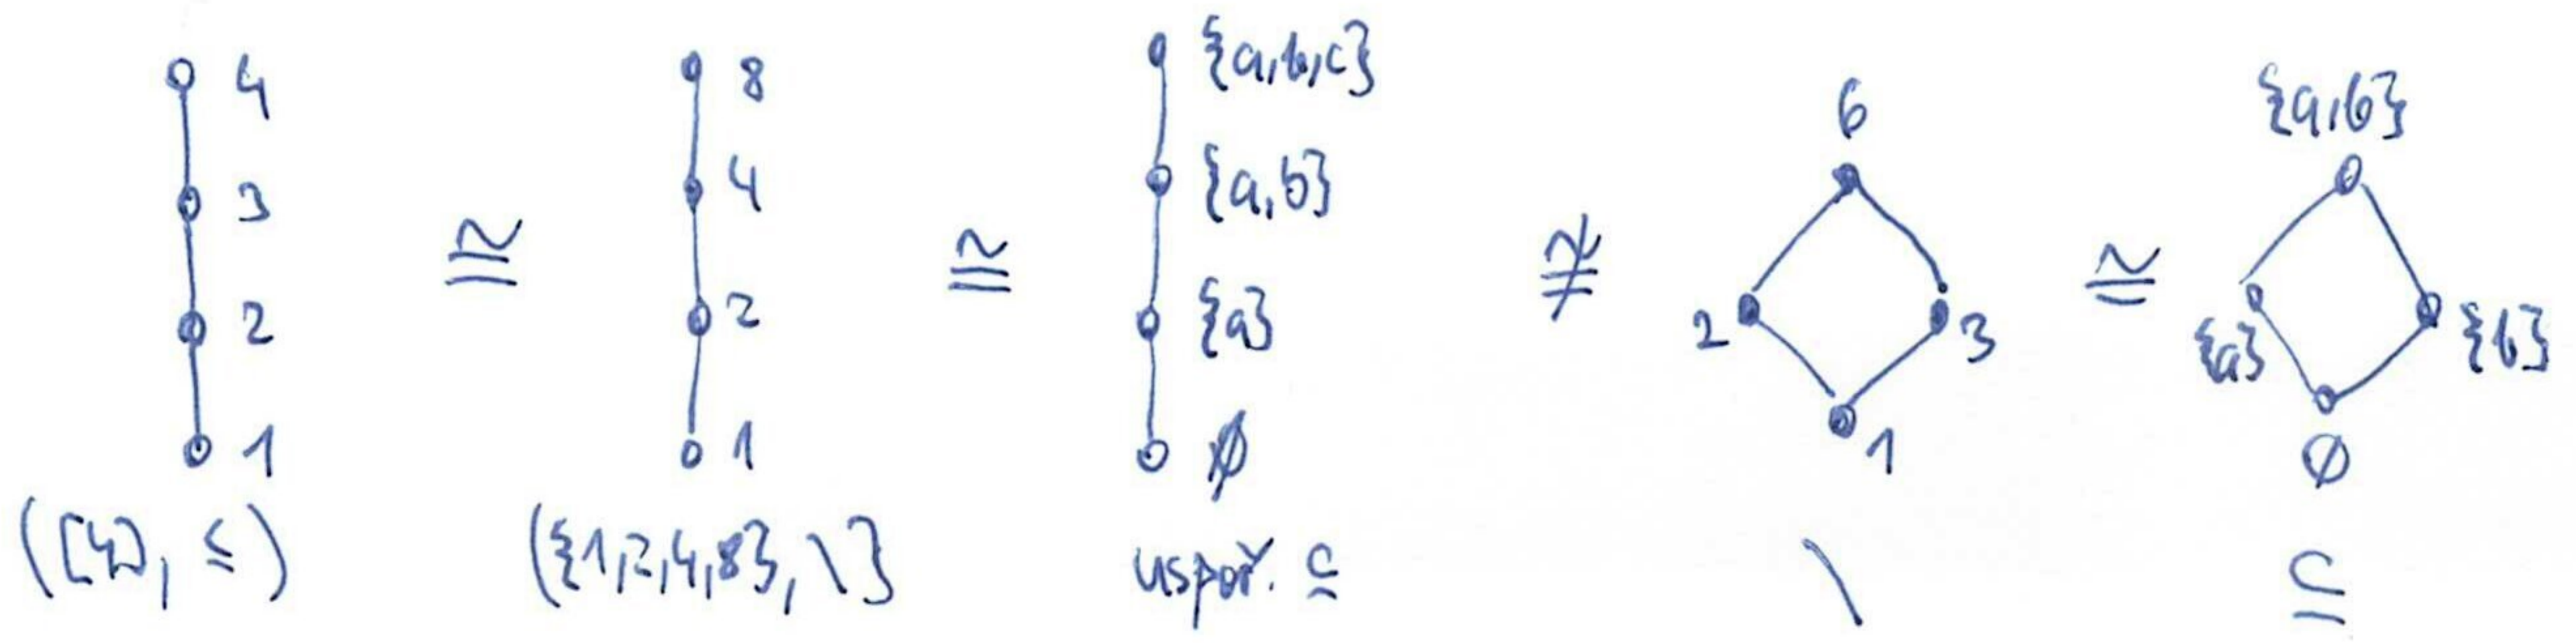 4
3
2
1
([4], ≤)
≅
8
4
2
1
({1,2,4,8}, \}
≅
{a,b,c}
{a,b}
{a}
∅
uspoř. ⊆
≇
6
2
3
1
\
≅
{a,b}
{a}
{b}
∅
⊆